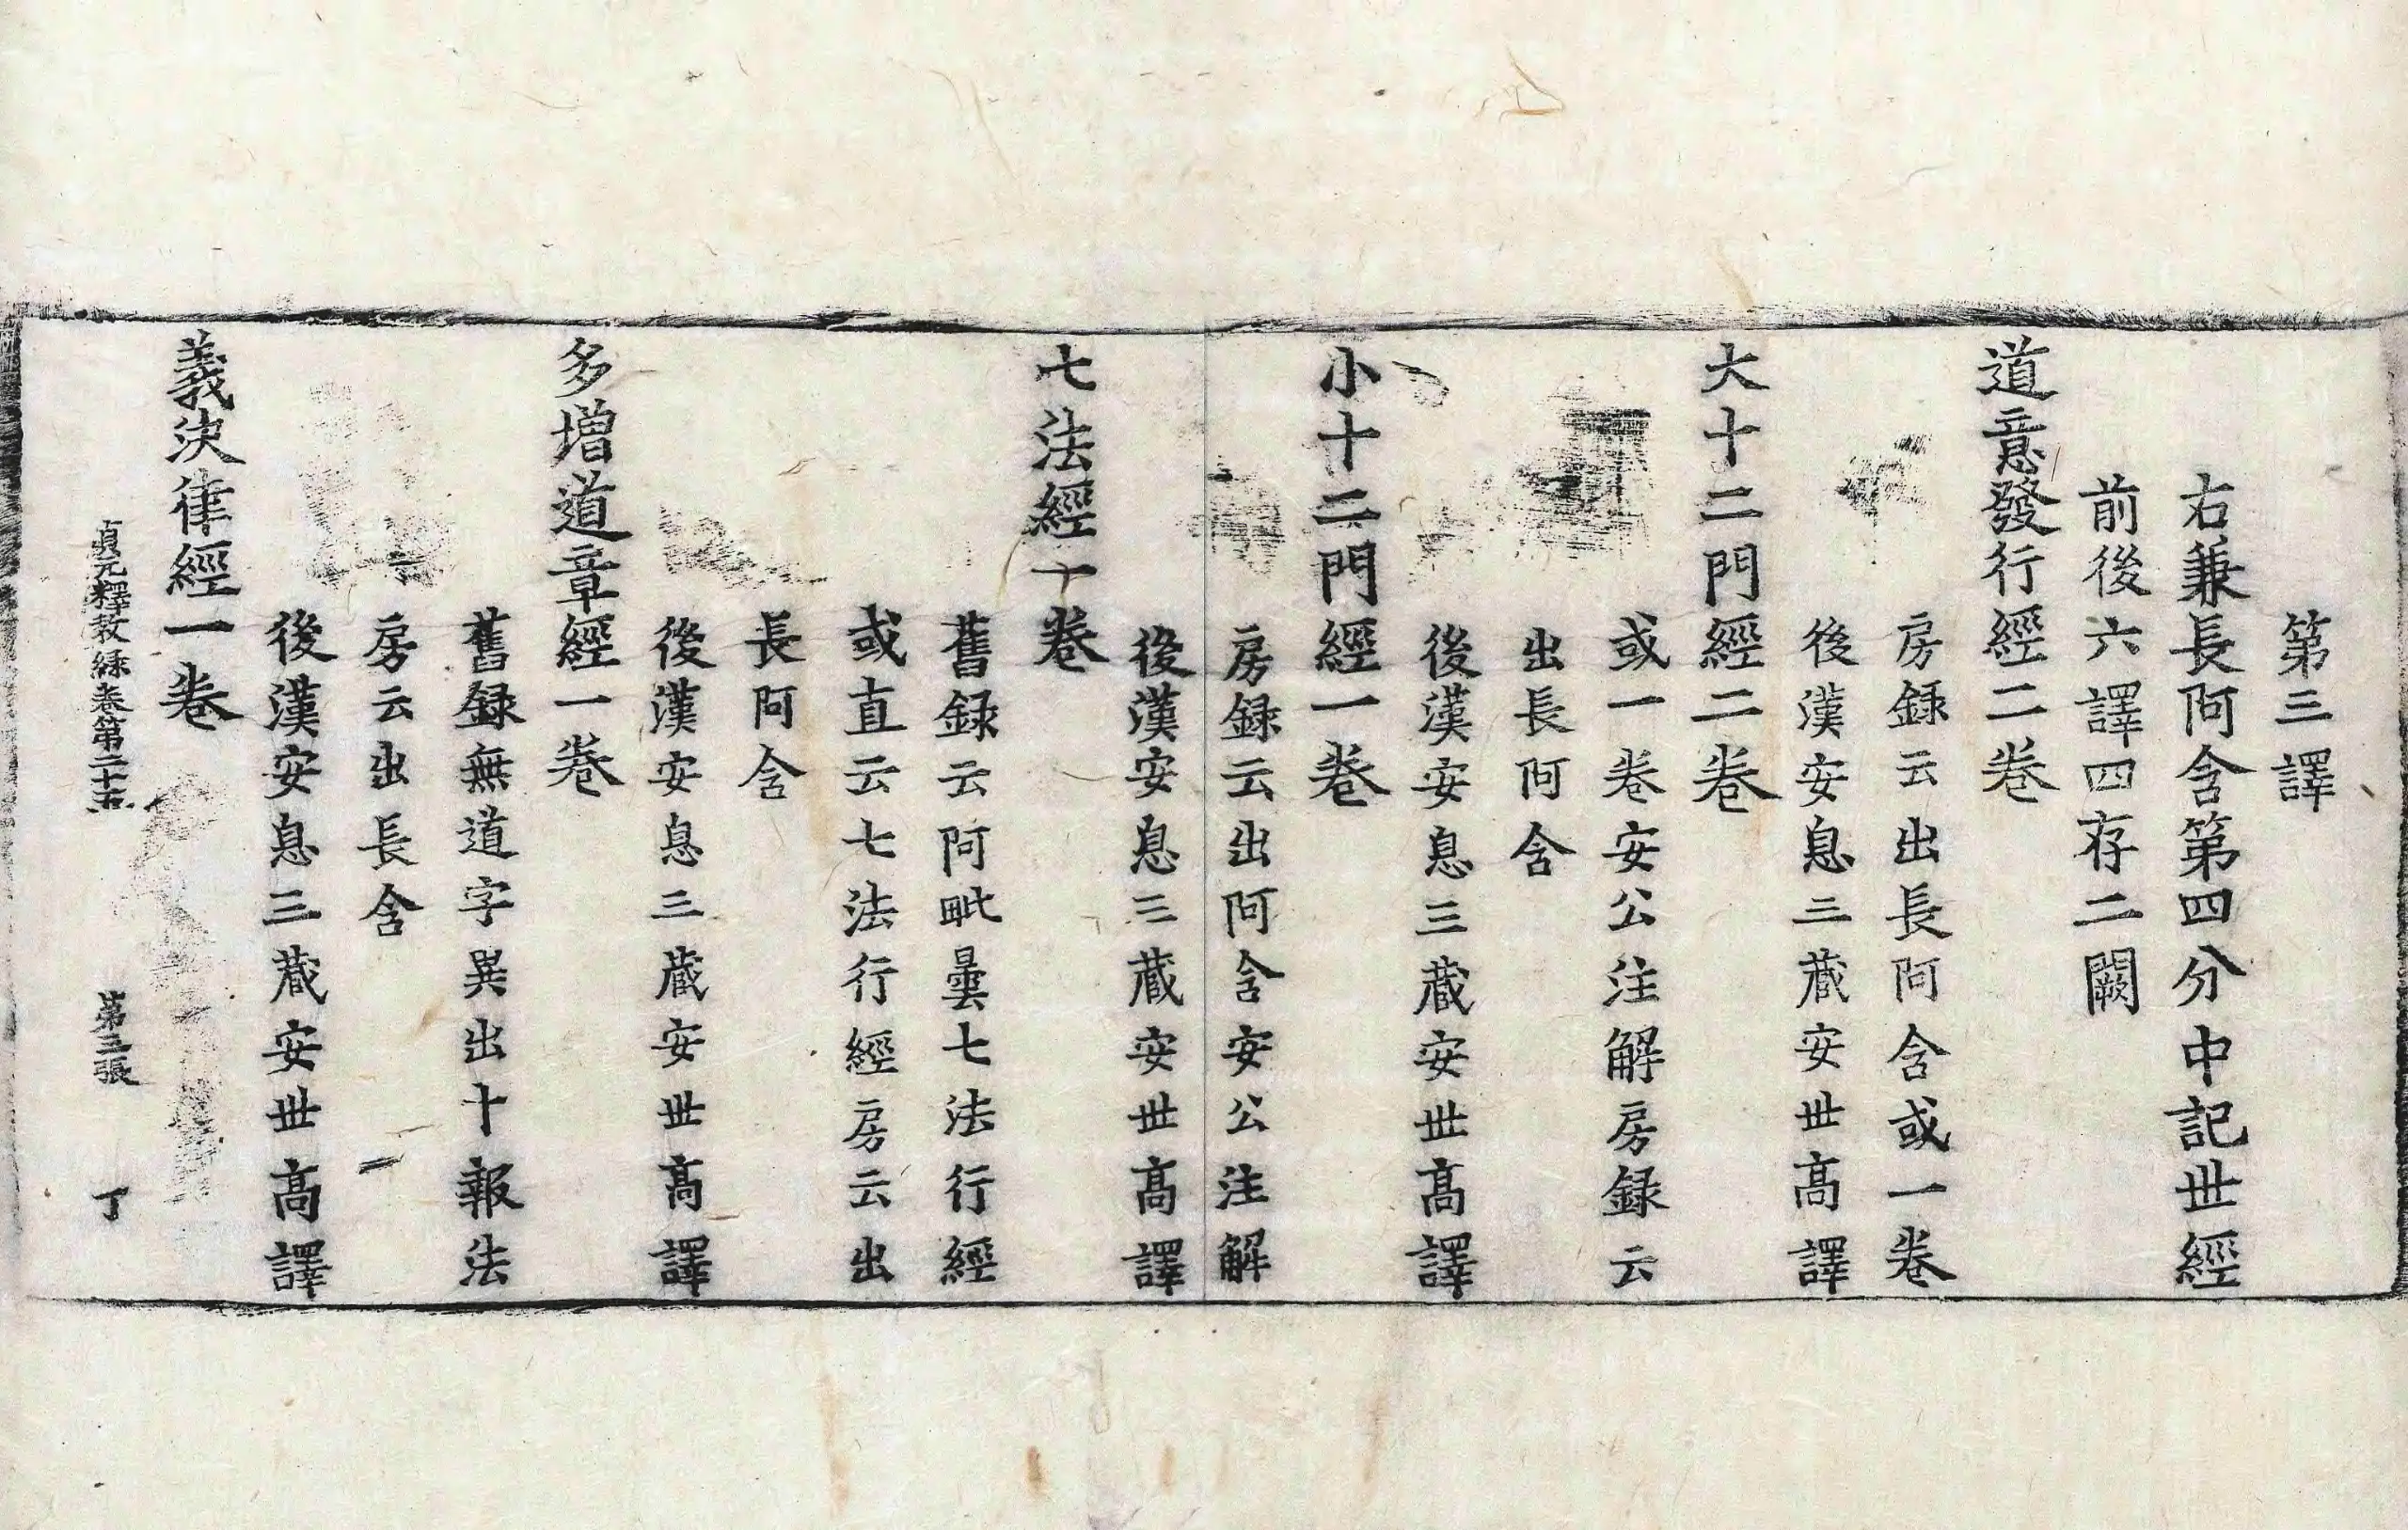 第三譯
右兼長阿含第四分中記世經
前後六譯四存二闕
道意發行經二卷
房録云出長阿含或一卷
後漢安息三藏安世高譯
大十二門經二卷
或一卷安公注解房録云
出長阿含
後漢安息三藏安世高譯
小十二門經一卷
房録云出阿含安公注解
後漢安息三藏安世高譯
七法經一卷
舊録云阿毗曇七法行經
或直云七法行經房云出
長阿含
後漢安息三藏安世高譯
多增道章經一卷
舊録無道字異出十報法
房云出長含
後漢安息三藏安世高譯
義決律經一卷
貞元釋教録卷第二十五 第三張 丁